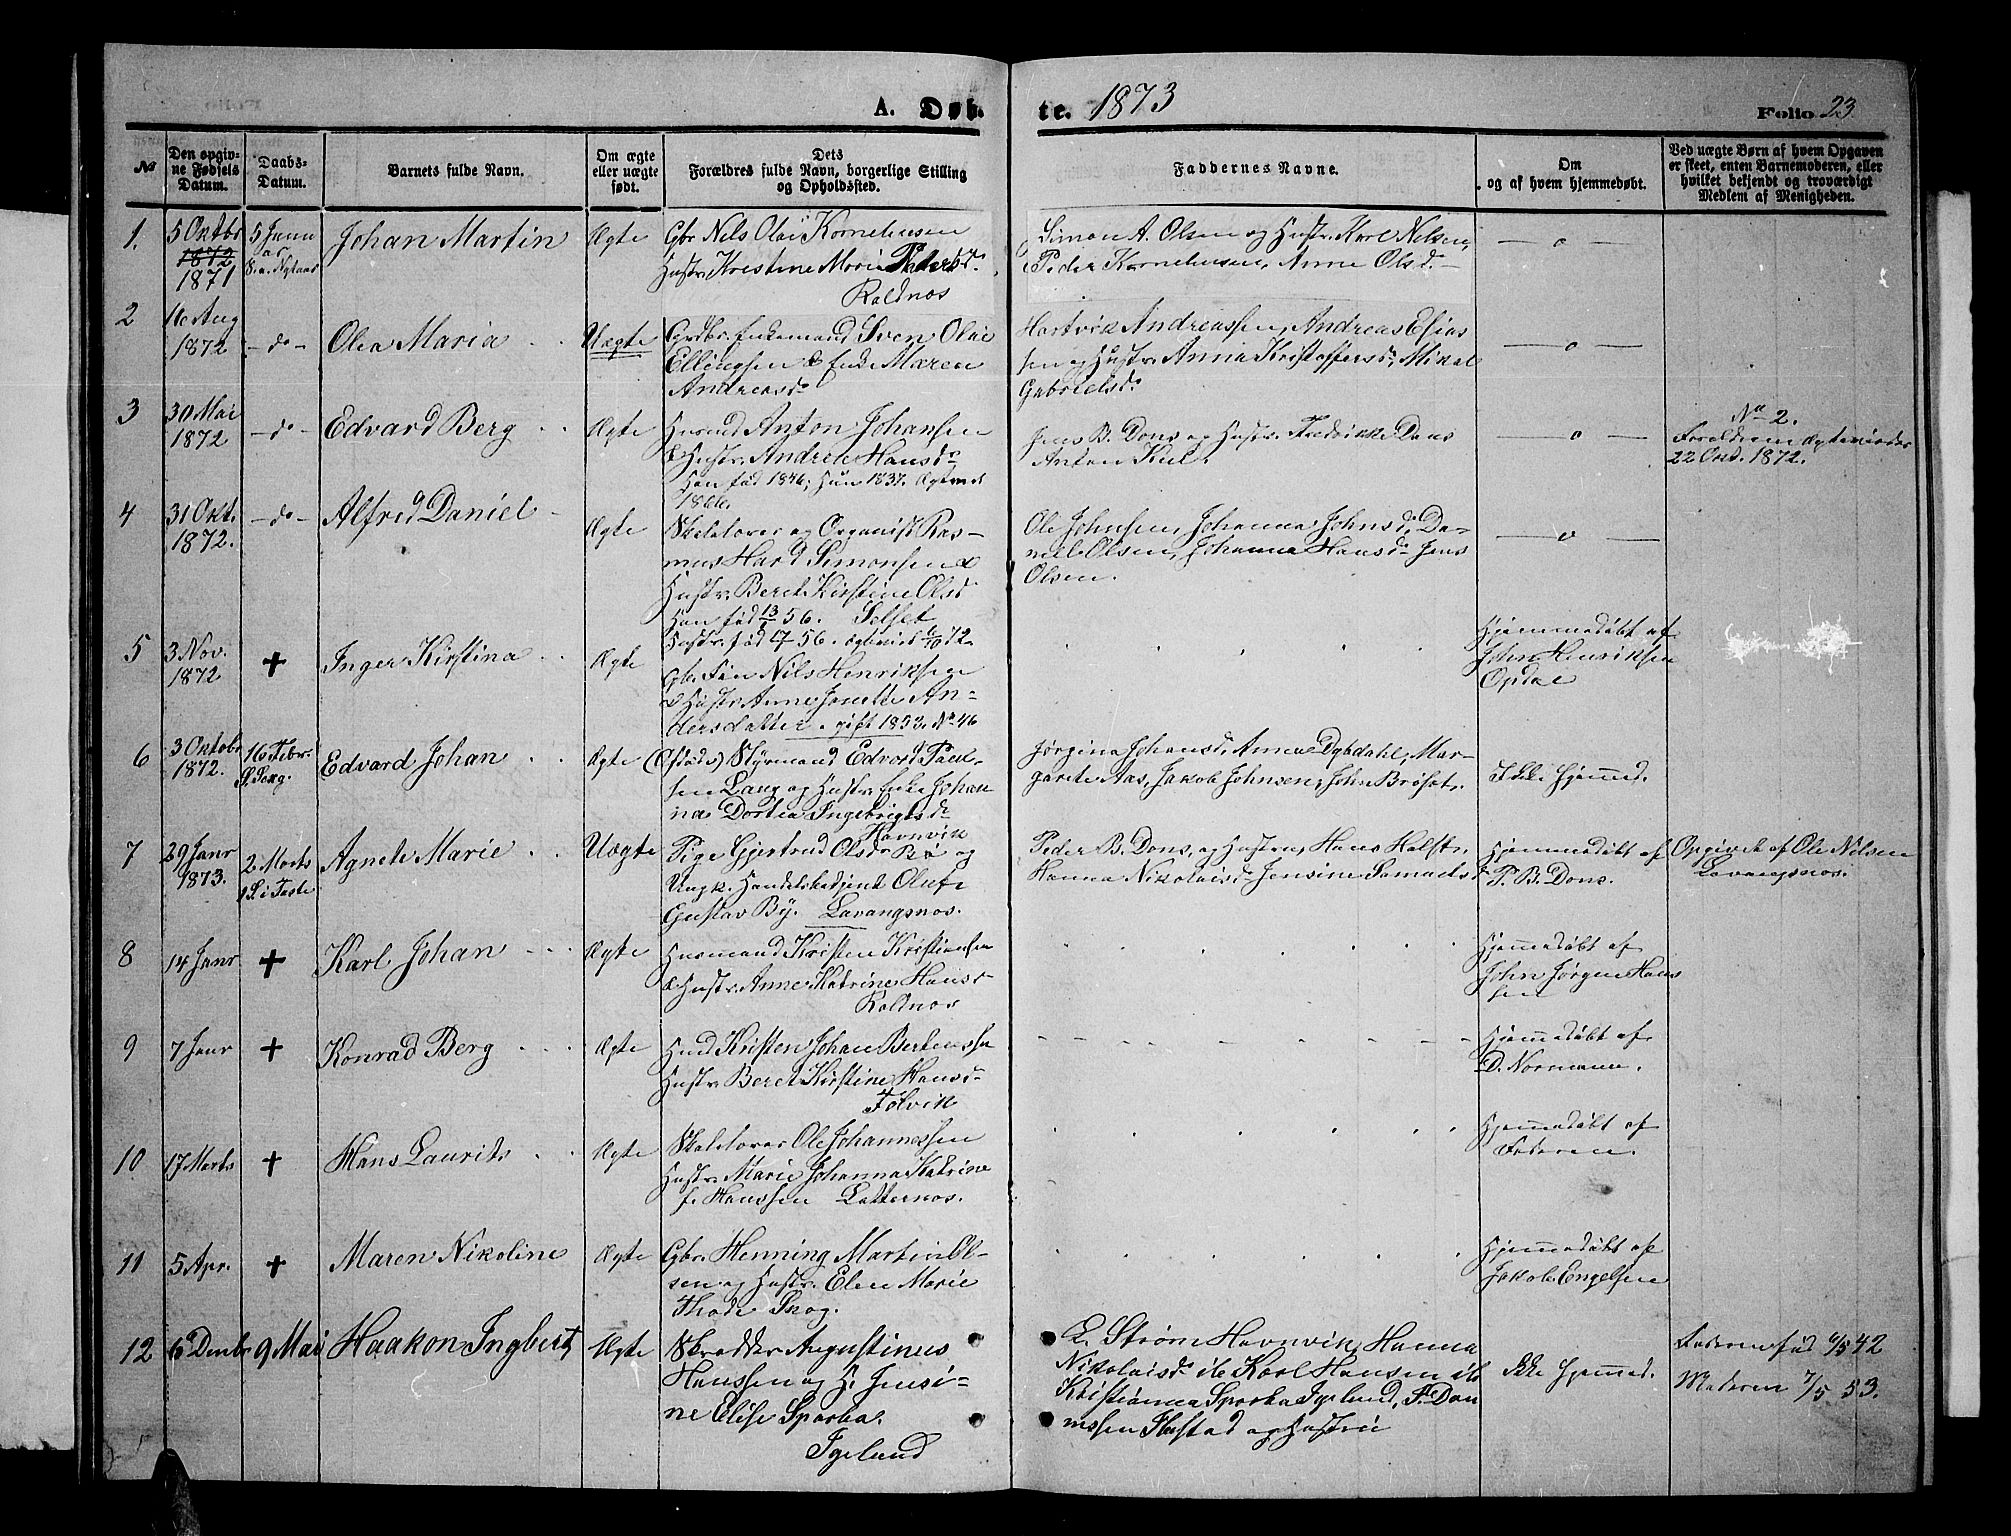 A. Døb-
te. 1873
Folio 23
№
Den opgiv-
ne Fødsels
Datum.
Daabs-
Datum.
Barnets fulde Navn.
Om ægte
eller uægte
født.
Dets
Forældres fulde Navn, borgerlige Stilling
og Opholdssted.
Faddernes Navne.
Om
og af hvem hjemmedøbt.
Ved uægte Børn af hvem Opgaven
er skeet, enten Barnemoderen, eller
hvilket bekjendt og troværdigt
Medlem af Menigheden.
1.
5 Oktbr
1872
1871
5 Janu
Johan Martin
Ægte
Gbr Nils Olai Kornelinsen
Hustr. Kristine Maria Pedersd.
Roldnos
Simon A. Olsen og Hustr. Karl Nilsen,
Peder Kornelinsen, Anne Olsd.
— o —
2
Aug
1872
— do —
Olea Maria
Uægte
Enkemand Sven Olai
Ellingsen & Enke Maren
Andreasd.
Hartvik Andreassen, Andreas Elias
sen og Hustr. Anna Kristoffersd., Mikal
Gabrielsd.
— o —
3
30 Mai
1872
— do —
Edvard Berg
Ægte
Husmd Anton Johansen
& Hustr. Andrea Hansd.
Han fød 1846, Hun 1837. Ægtev.
1866.
Jens B. Dons og Hustr. Fredrikke Dons
Anton Kiil.
— o —
No 2.
22 Okt. 1872.
4
31 Okt.
1872.
— do —
Alfred Daniel
Ægte
Skolelærer og Organist Ras-
mus Hard Simonsen &
Hustr. Beret Kirstine Olsd
Han fød 56. Selset
Hustr. fød 56. Ægteviet 72
Ole Johnsen, Johanna Johnsd, Da-
niel Olsen, Johanna Hansd. Jens
Olsen.
— o —
5
3 Nov.
1872
+
Inger Kirstina
Ægte
Nils Henriksen
& Hustr. Anne Jonette An-
dersdatter. gift 1853. No 46
Hjemmedøbt af
John Henriksen
Opdal
6
3 Oktobr
1872.
16 Febr.
Edvard Johan
Ægte
Styrmand Edvard Paul-
sen Lang og Hustr. Enke Johan
na Dortia Ingebrigtsd.
Havnvik
Jørgina Johansd, Anna Dybdahl, Mar-
garete Aas, Jakob Johnsen, John Brøset.
Ikke Hjemmed.
7
29 Janr
1873.
2 Marts
1 S. i Faste
Agnete Marie
Uægte
Pige Gjertrud Olsdr Bø og
Ungk. Handelsbetjent Oluf
Gustav By. Lavangsnos.
Peder B. Dons, og Hustru, Hans Holst,
Hanna Nikolaisd. Jensine Samuelsd
Hjemmedøbt af
P. B. Dons.
Opgivet af Ole Nilsen
Lavangsnos.
8
14 Janr
+
Karl Johan
Ægte
Husmand Kristen Kristiansen
& Hustr. Anne Katrine Hansd
Roldnos
Hjemmedøbt af
John Jørgen Hans
sen
9
7 Janr
+
Konrad Berg
Ægte
Hmd Kristen Johan Bertinssen
Hustr. Beret Kirstine Hansd.
Følvik
Hjemmedøbt af
D. Normann.
10
17 Marts
+
Hans Laurits
Ægte
Skolelærer Ole Johannessen
Hustr. Marie Johanna Katrine
f. Hanssen Latternos.
Hjemmedøbt af
Faderen.
11
5 Apr.
+
Maren Nikoline
Ægte
Gbr. Henning Martin Ol-
sen og Hustr. Elen Marie
Thode Skog.
Hjemmedøbt af
Jakob Engelsen
12
6 Dembr
9 Mai
Haakon Ingbert
Ægte
Skrædder Augustinus
Hanssen og H. Jensi-
ne Elise Sparba.
Igelund
L. Strøm Havnvik, Hanna
Nikolaisd. ib Karl Hansen ib
Kristianna Sparba Igelund, P. Dan
og Hustru
Ikke Hjemmed.
Faderen fød 6/5 42
Moderen 7/5 53.